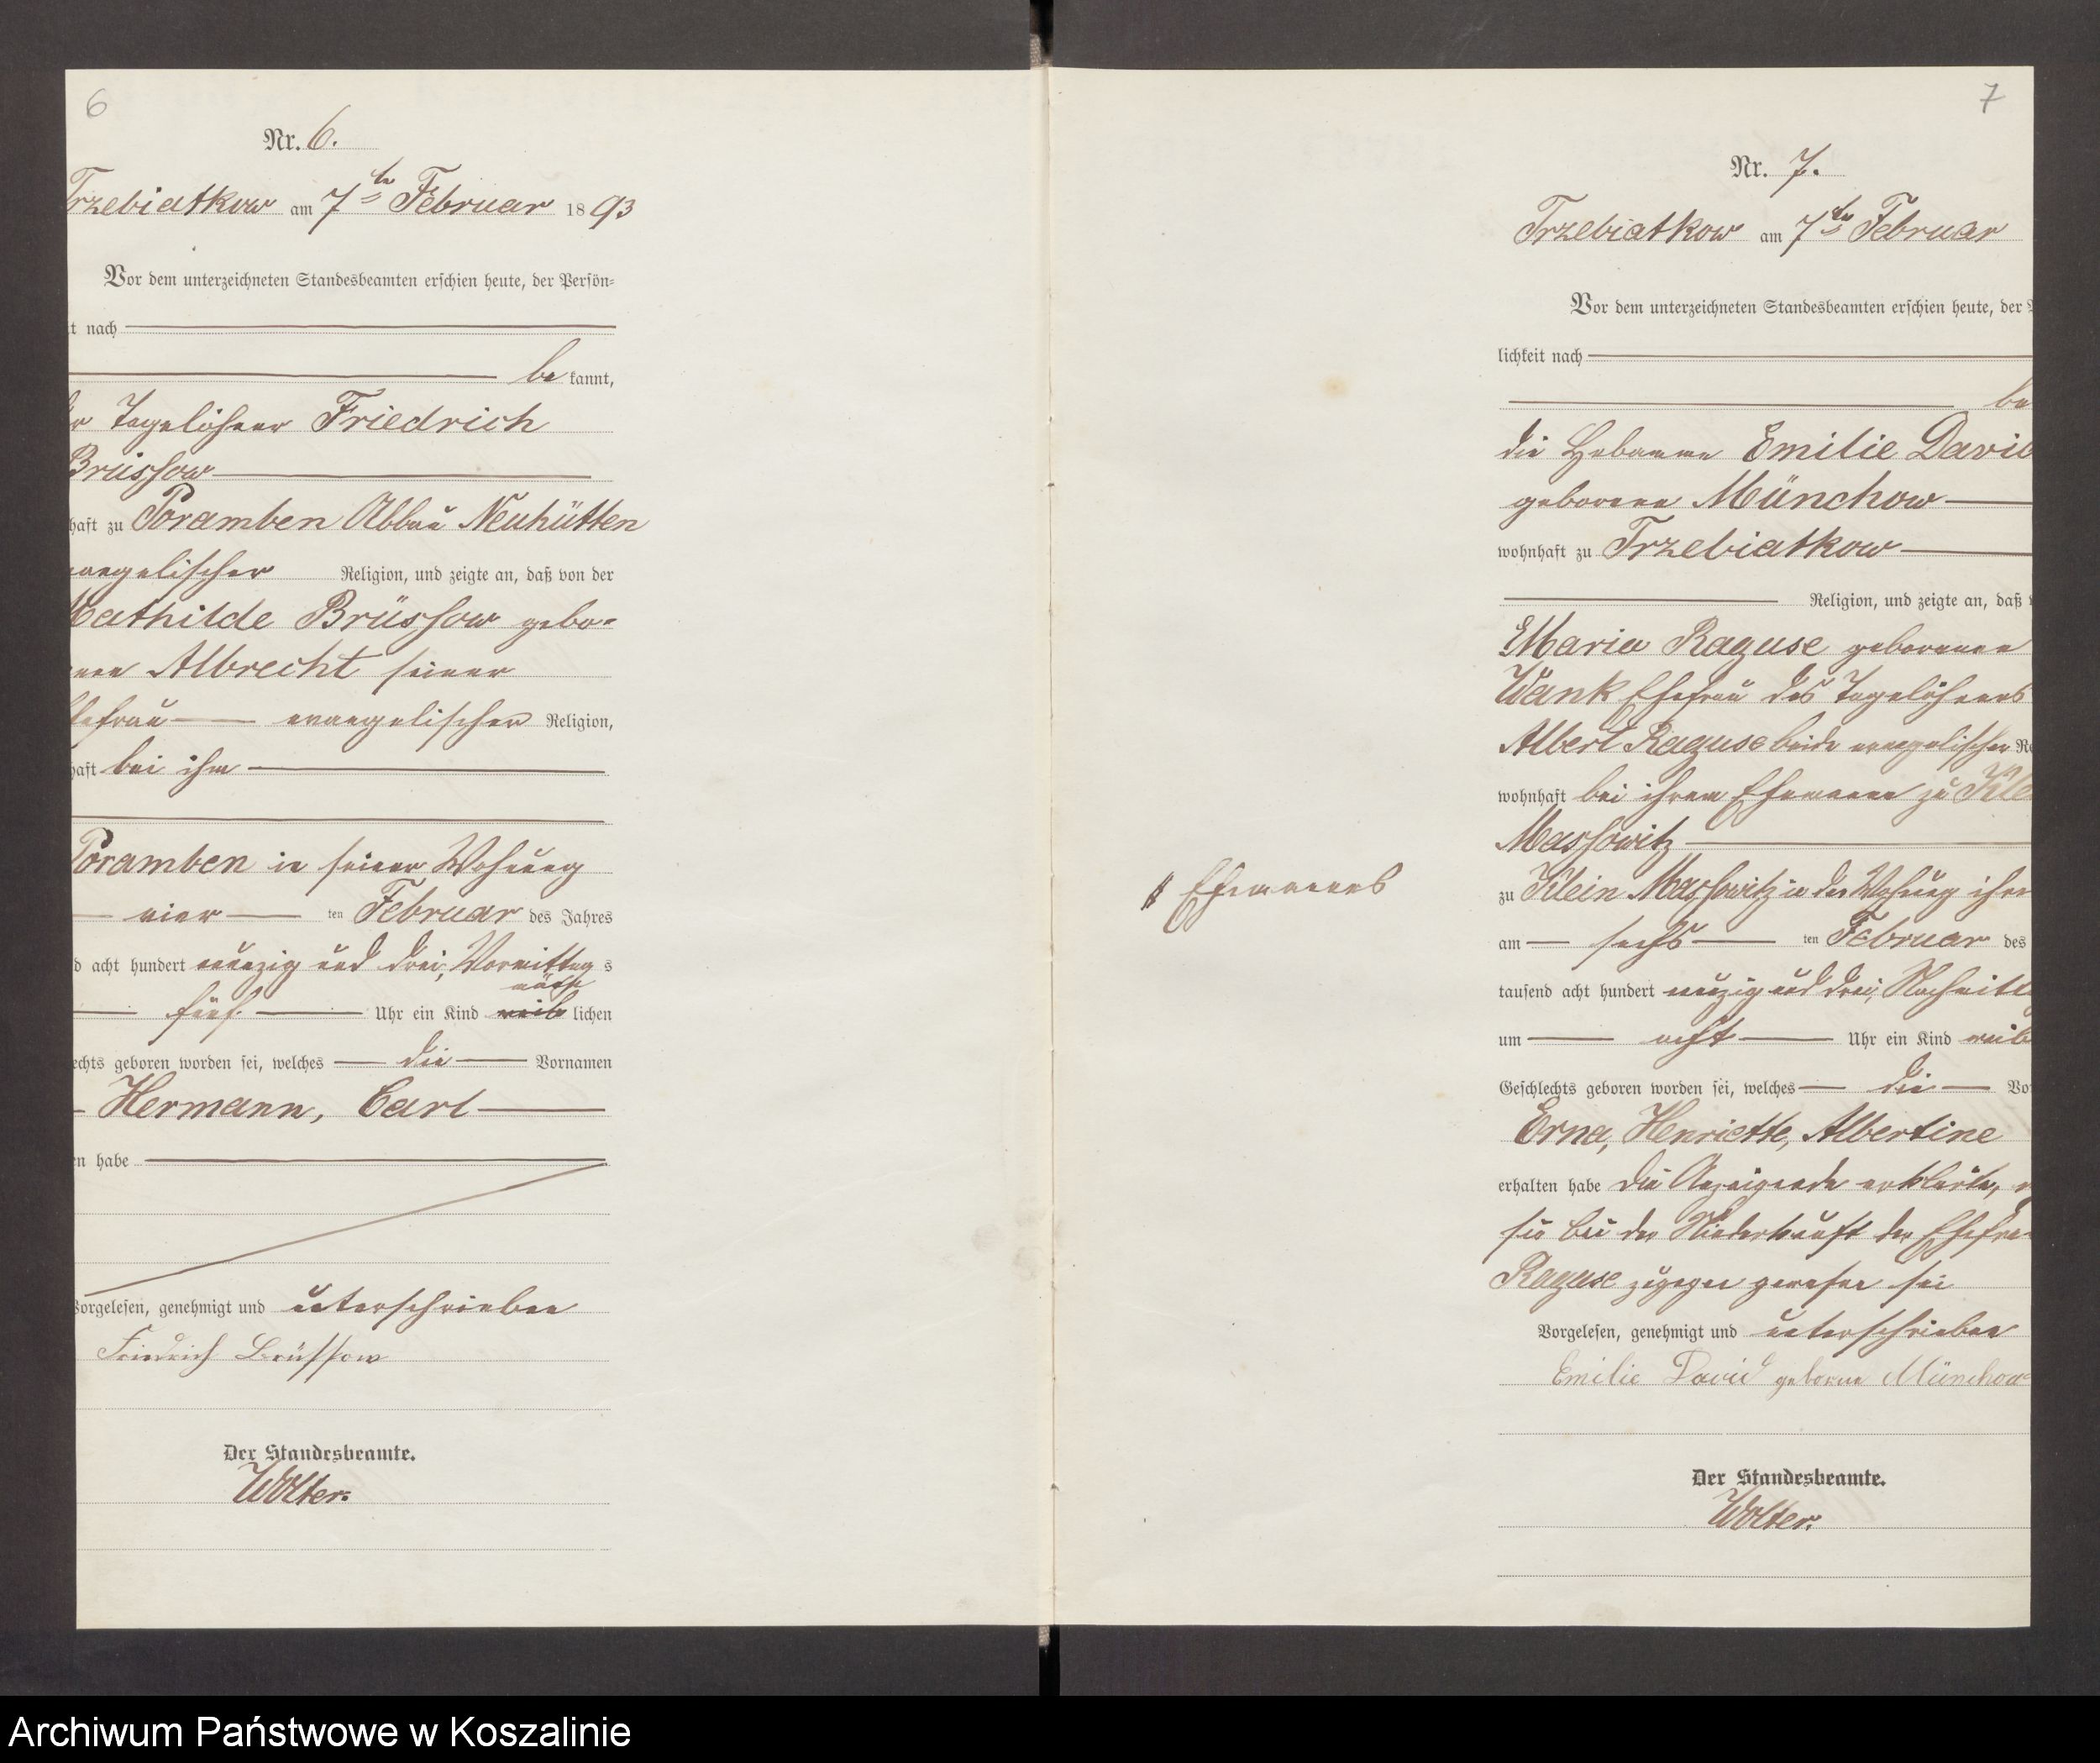 6
Nr. 6.
Trzebiatkow am 7ten Februar 1893
Vor dem unterzeichneten Standesbeamten erschien heute, der Persön-
t nach
be kannt,
r Tagelöhner Friedrich
Brüssow
haft zu Poramben Abbau Neuhütten
vangelischer Religion, und zeigte an, daß von der
Mathilde Brüssow gebo-
nen Albrecht seiner
Ehefrau evangelischen Religion,
haft bei ihm
Poramben in seiner Wohnung
vier ten Februar des Jahres
d acht hundert neunzig und drei, Vormittag s
männ
fünf Uhr ein Kind weib lichen
echts geboren worden sei, welches die Vornamen
Hermann, Carl
en habe
Vorgelesen, genehmigt und unterschrieben
Friedrich Brüssow
Der Standesbeamte.
Wolter.
7
Nr. 7.
Trzebiatkow am 7ten Februar
Vor dem unterzeichneten Standesbeamten erschien heute, der P
lichkeit nach
be
die Hebamme Emilie David
geborene Münchow
wohnhaft zu Trzebiatkow
Religion, und zeigte an, daß v
Maria Raguse geborenen
Wank Ehefrau des Tagelöhners
Albert Raguse beide evangelischer Re
wohnhaft bei ihrem Ehemanne zu Kle
Massowitz
zu Klein Massowitz in der Wohnung ihres
Ehemannes
am sechs ten Februar des
tausend acht hundert neunzig und drei, Nachmitt
um acht Uhr ein Kind weib
Geschlechts geboren worden sei, welches die Vo
Erna, Henriette, Albertine
erhalten habe Die Anzeigende erklärte,
sie bei der Niederkunft der Ehefra
Raguse zugegen gewesen sei
Vorgelesen, genehmigt und unterschrieben
Emilie David geborne Münchow
Der Standesbeamte.
Wolter.
Archiwum Państwowe w Koszalinie